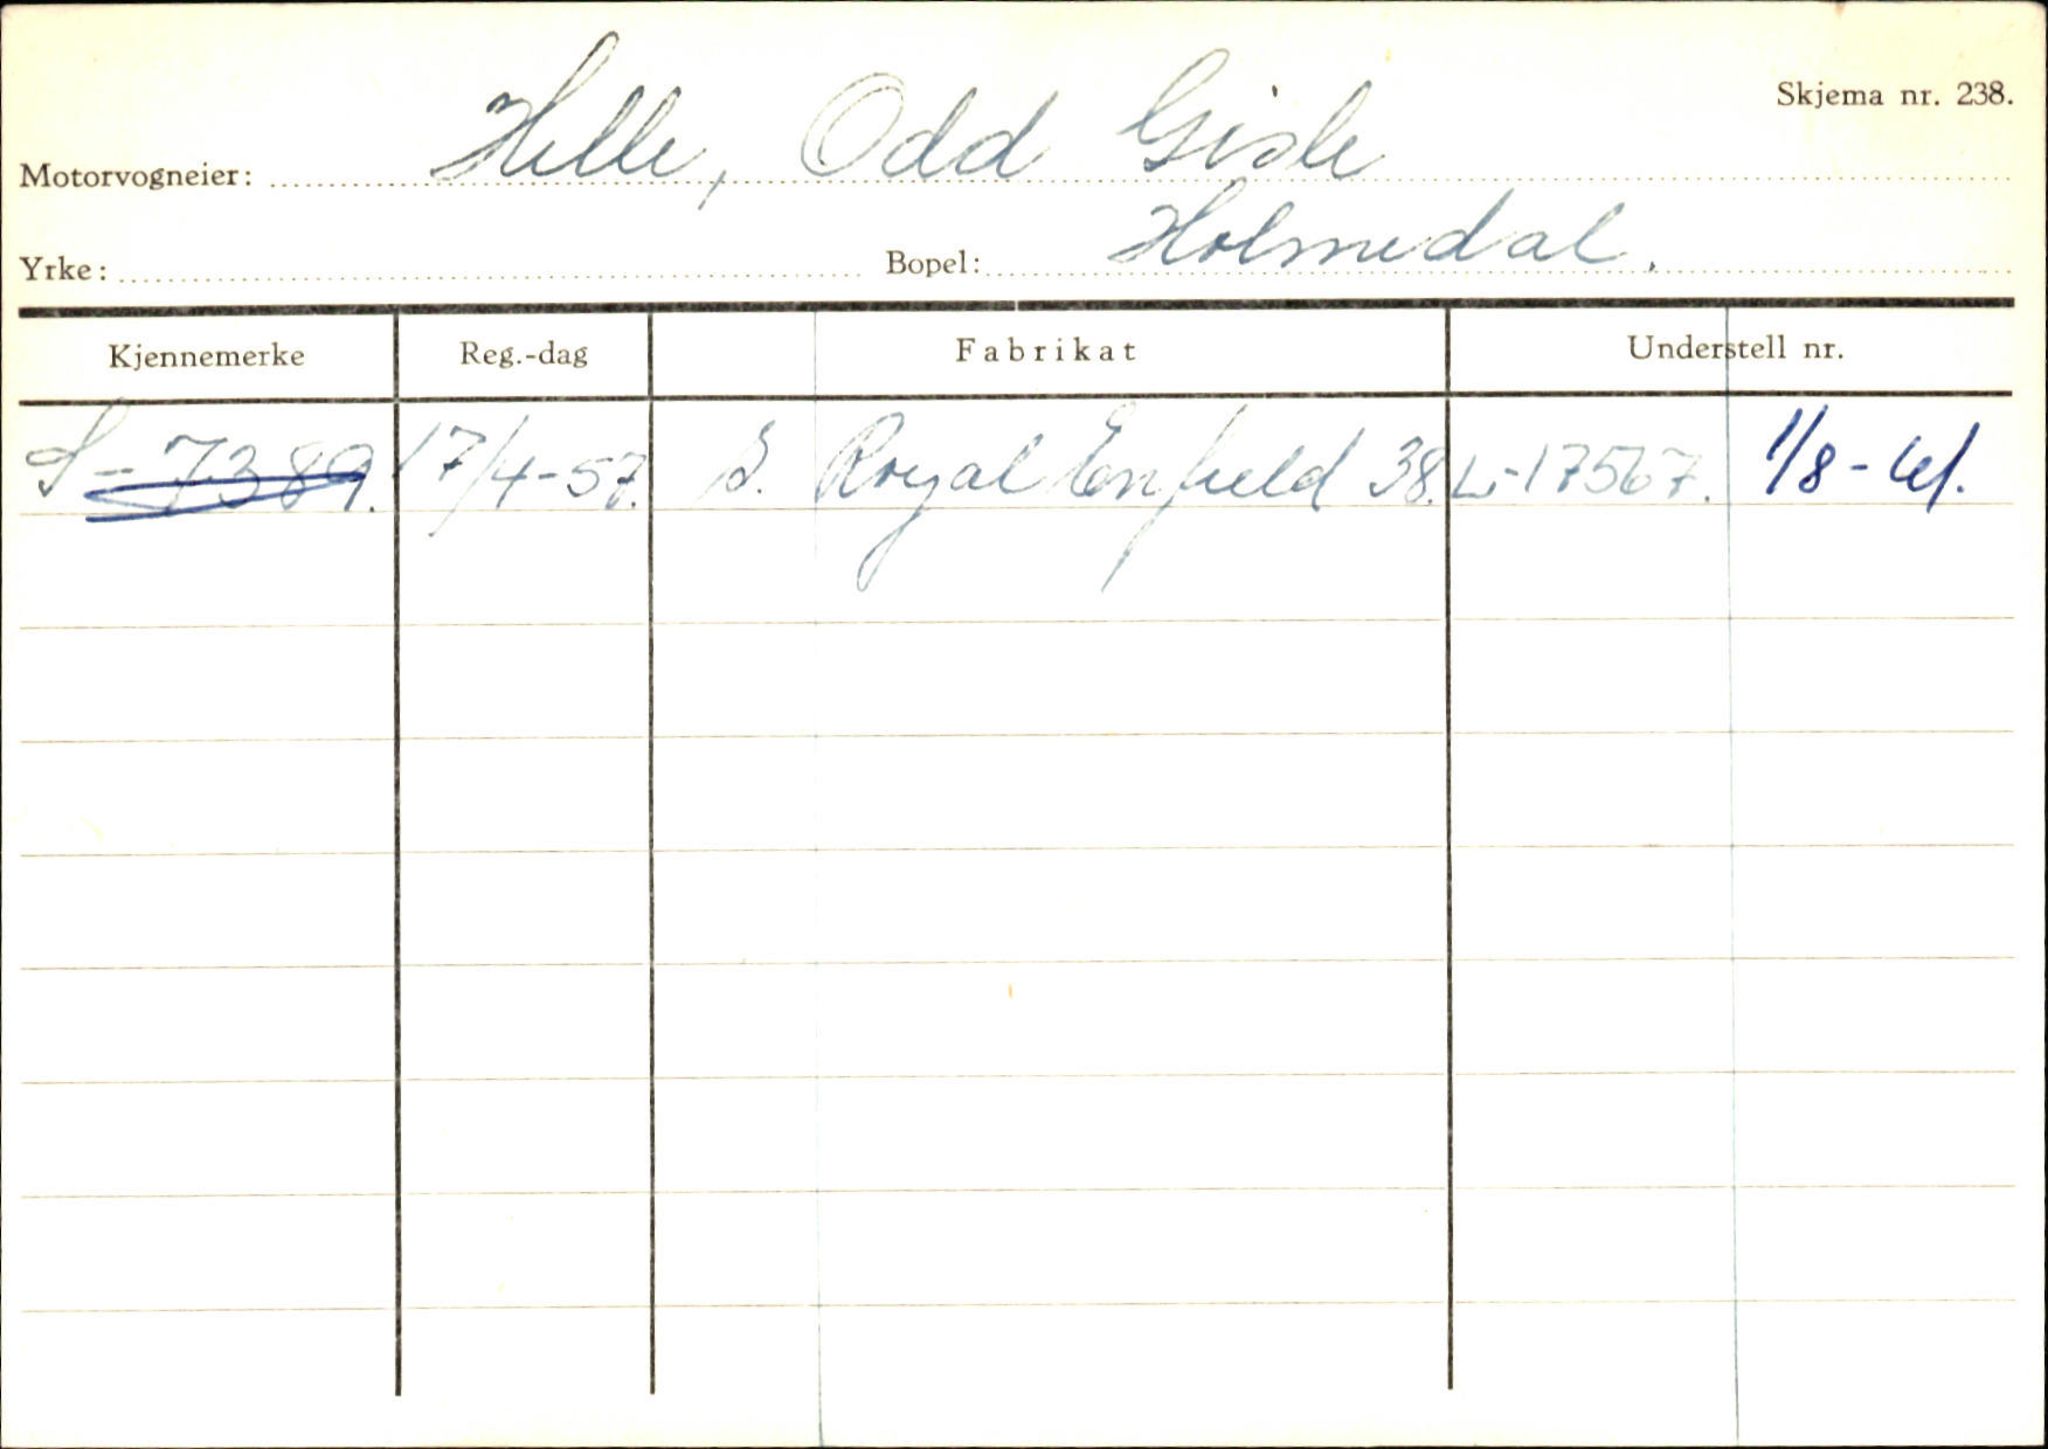 Skjema nr. 238.
Motorvogneier: Helle, Odd Gisle
Yrke: Bopel: Holmedal.
Kjennemerke Reg.-dag Fabrikat Understell nr.
S-7389. 17/4-57. S. Royal Enfield 38. L-17567. 1/8-61.